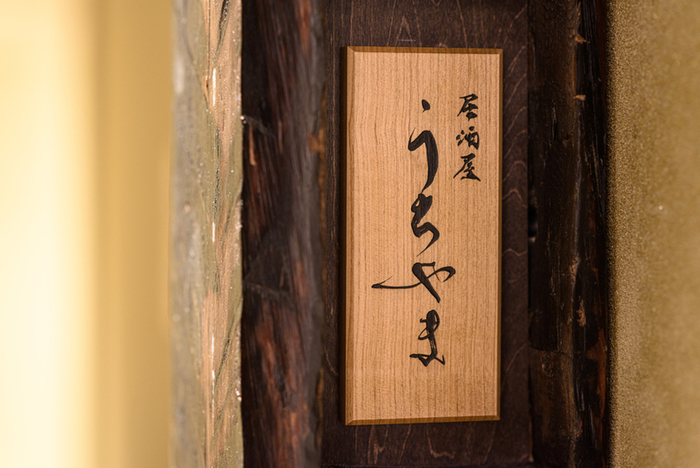 居酒屋
うちやま